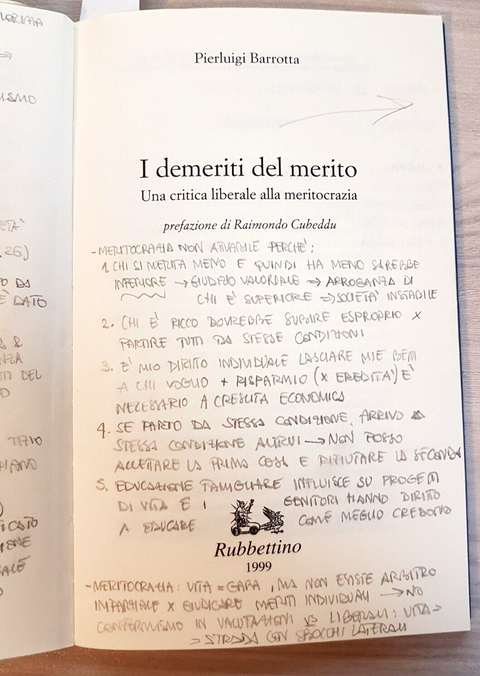 LORITA
ISMO
ETÀ
26)
DA
È DATO
&
NZA
TI DEL
O
TIZIO
PIANO
FICATO
Pierluigi Barrotta
I demeriti del merito
Una critica liberale alla meritocrazia
prefazione di Raimondo Cubeddu
- MERITOCRAZIA NON ATTUABILE PERCHÈ:
1. CHI SI MERITA MENO E QUINDI HA MENO SAREBBE
INFERIORE → GIUDIZIO VALORIALE → ARROGANZA DI
CHI È SUPERIORE → SOCIETÀ INSTABILE
2. CHI È RICCO DOVREBBE SUBIRE ESPROPRIO X
PARTIRE TUTTI DA STESSE CONDIZIONI
3. È MIO DIRITTO INDIVIDUALE LASCIARE MIE BENI
A CHI VOGLIO + RISPARMIO (X EREDITÀ) È
NECESSARIO A CRESCITA ECONOMICA
4. SE PARTO DA STESSA CONDIZIONE, ARRIVO A
STESSA CONDIZIONE ALTRUI → NON POSSO
ACCETTARE LA PRIMA COSA E RIFIUTARE LA SECONDA
5. EDUCAZIONE FAMIGLIARE INFLUISCE SU PROGETTI
DI VITA E I GENITORI HANNO DIRITTO
A EDUCARE COME MEGLIO CREDONO
Rubbettino
1999
- MERITOCRAZIA: VITA = GARA, MA NON ESISTE ARBITRO
IMPARZIALE X GIUDICARE MERITI INDIVIDUALI → NO
CONFORMISMO IN VALUTAZIONI VS LIBERALI: VITA =
= STRADA CON SBOCCHI LATERALI